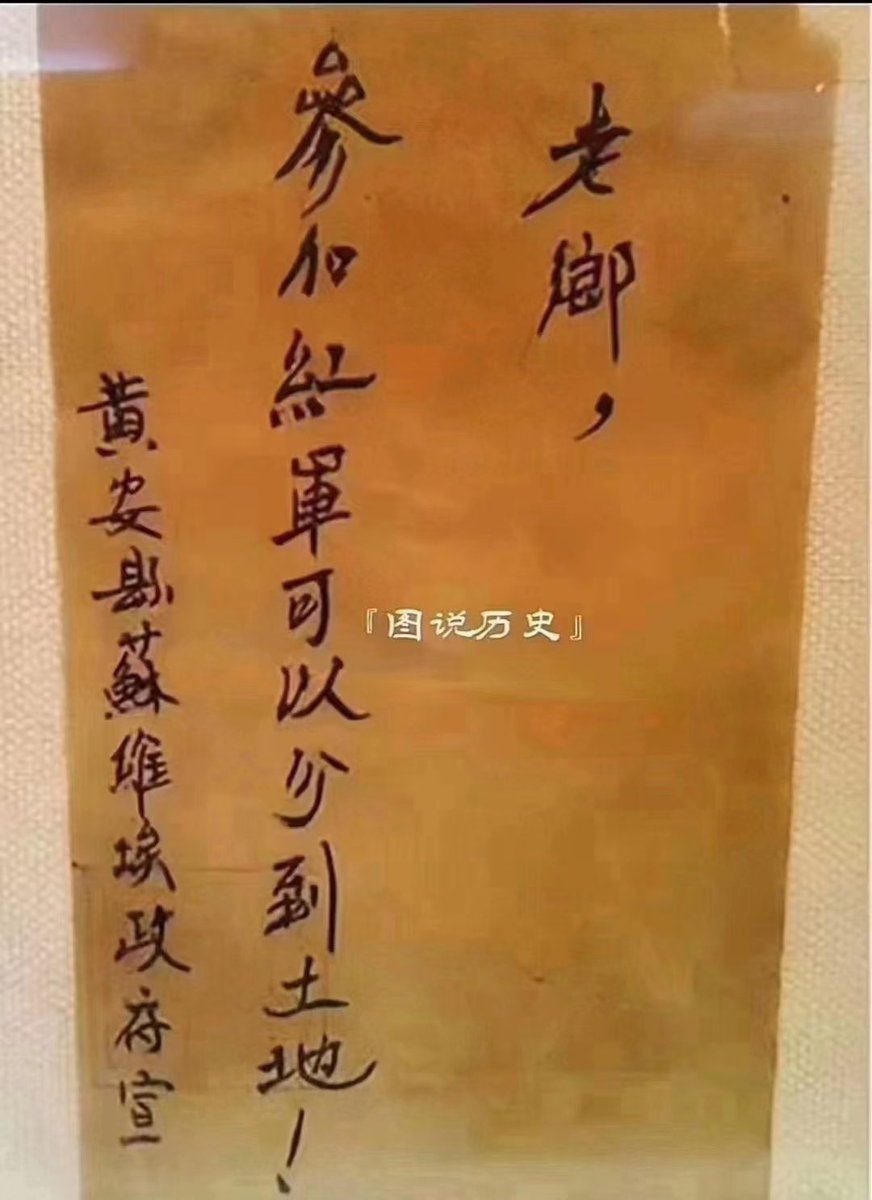 老鄉，
參加紅軍可以分到土地！
黃安縣蘇維埃政府宣
『图说历史』